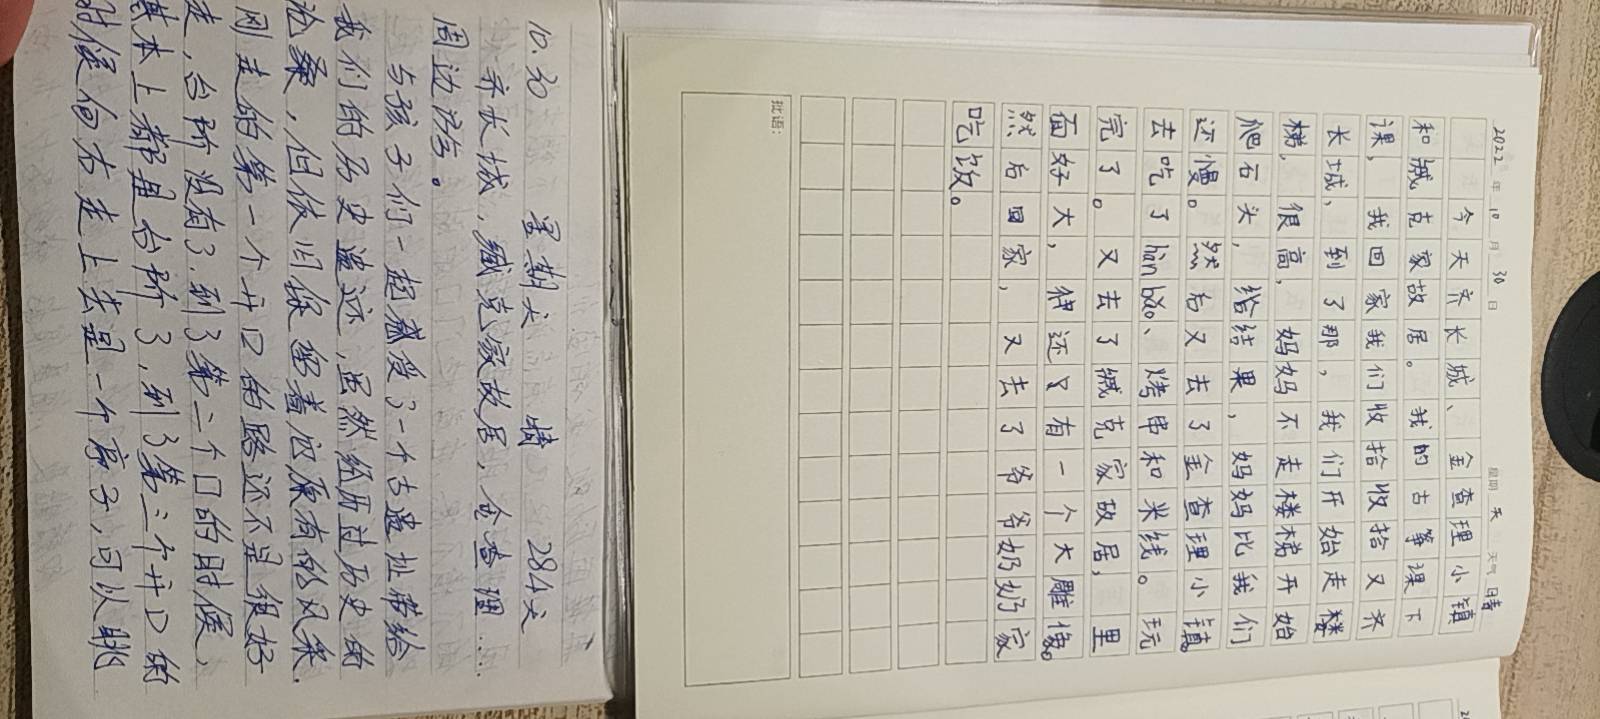 2022年10月30日 星期天 天气晴
今天齐长城、金查理小镇
和臧克家故居。我的古筝课下
课,我回家我们收拾收拾又齐
长城,到了那,我们开始走楼
梯,很高,妈妈不走楼梯开始
爬石头,给结果,妈妈妈比我们
还慢。然后又去了金查理小镇
去吃了liàn bāo、烤串和米线。玩
完了。又去了臧克家故居,里
面好大,律还只有一个大雕像。
然后回家,又去了爷爷奶奶家
吃饭。
批语:
10.30 星期天 晴 284天
齐长城,臧克家故居,金查理……
周边游。
与孩子们一起感受了一个古遗址带给
我们的历史遗迹,虽然经历过历史的
沧桑,但依旧保留着原有的风采.
刚走的第一个开口的路还不是很好
走,台阶没有了.到了第二个口的时候,
基本上都是台阶了,到了第三个开口的
时候向右走上去是一个亭子,可以眺